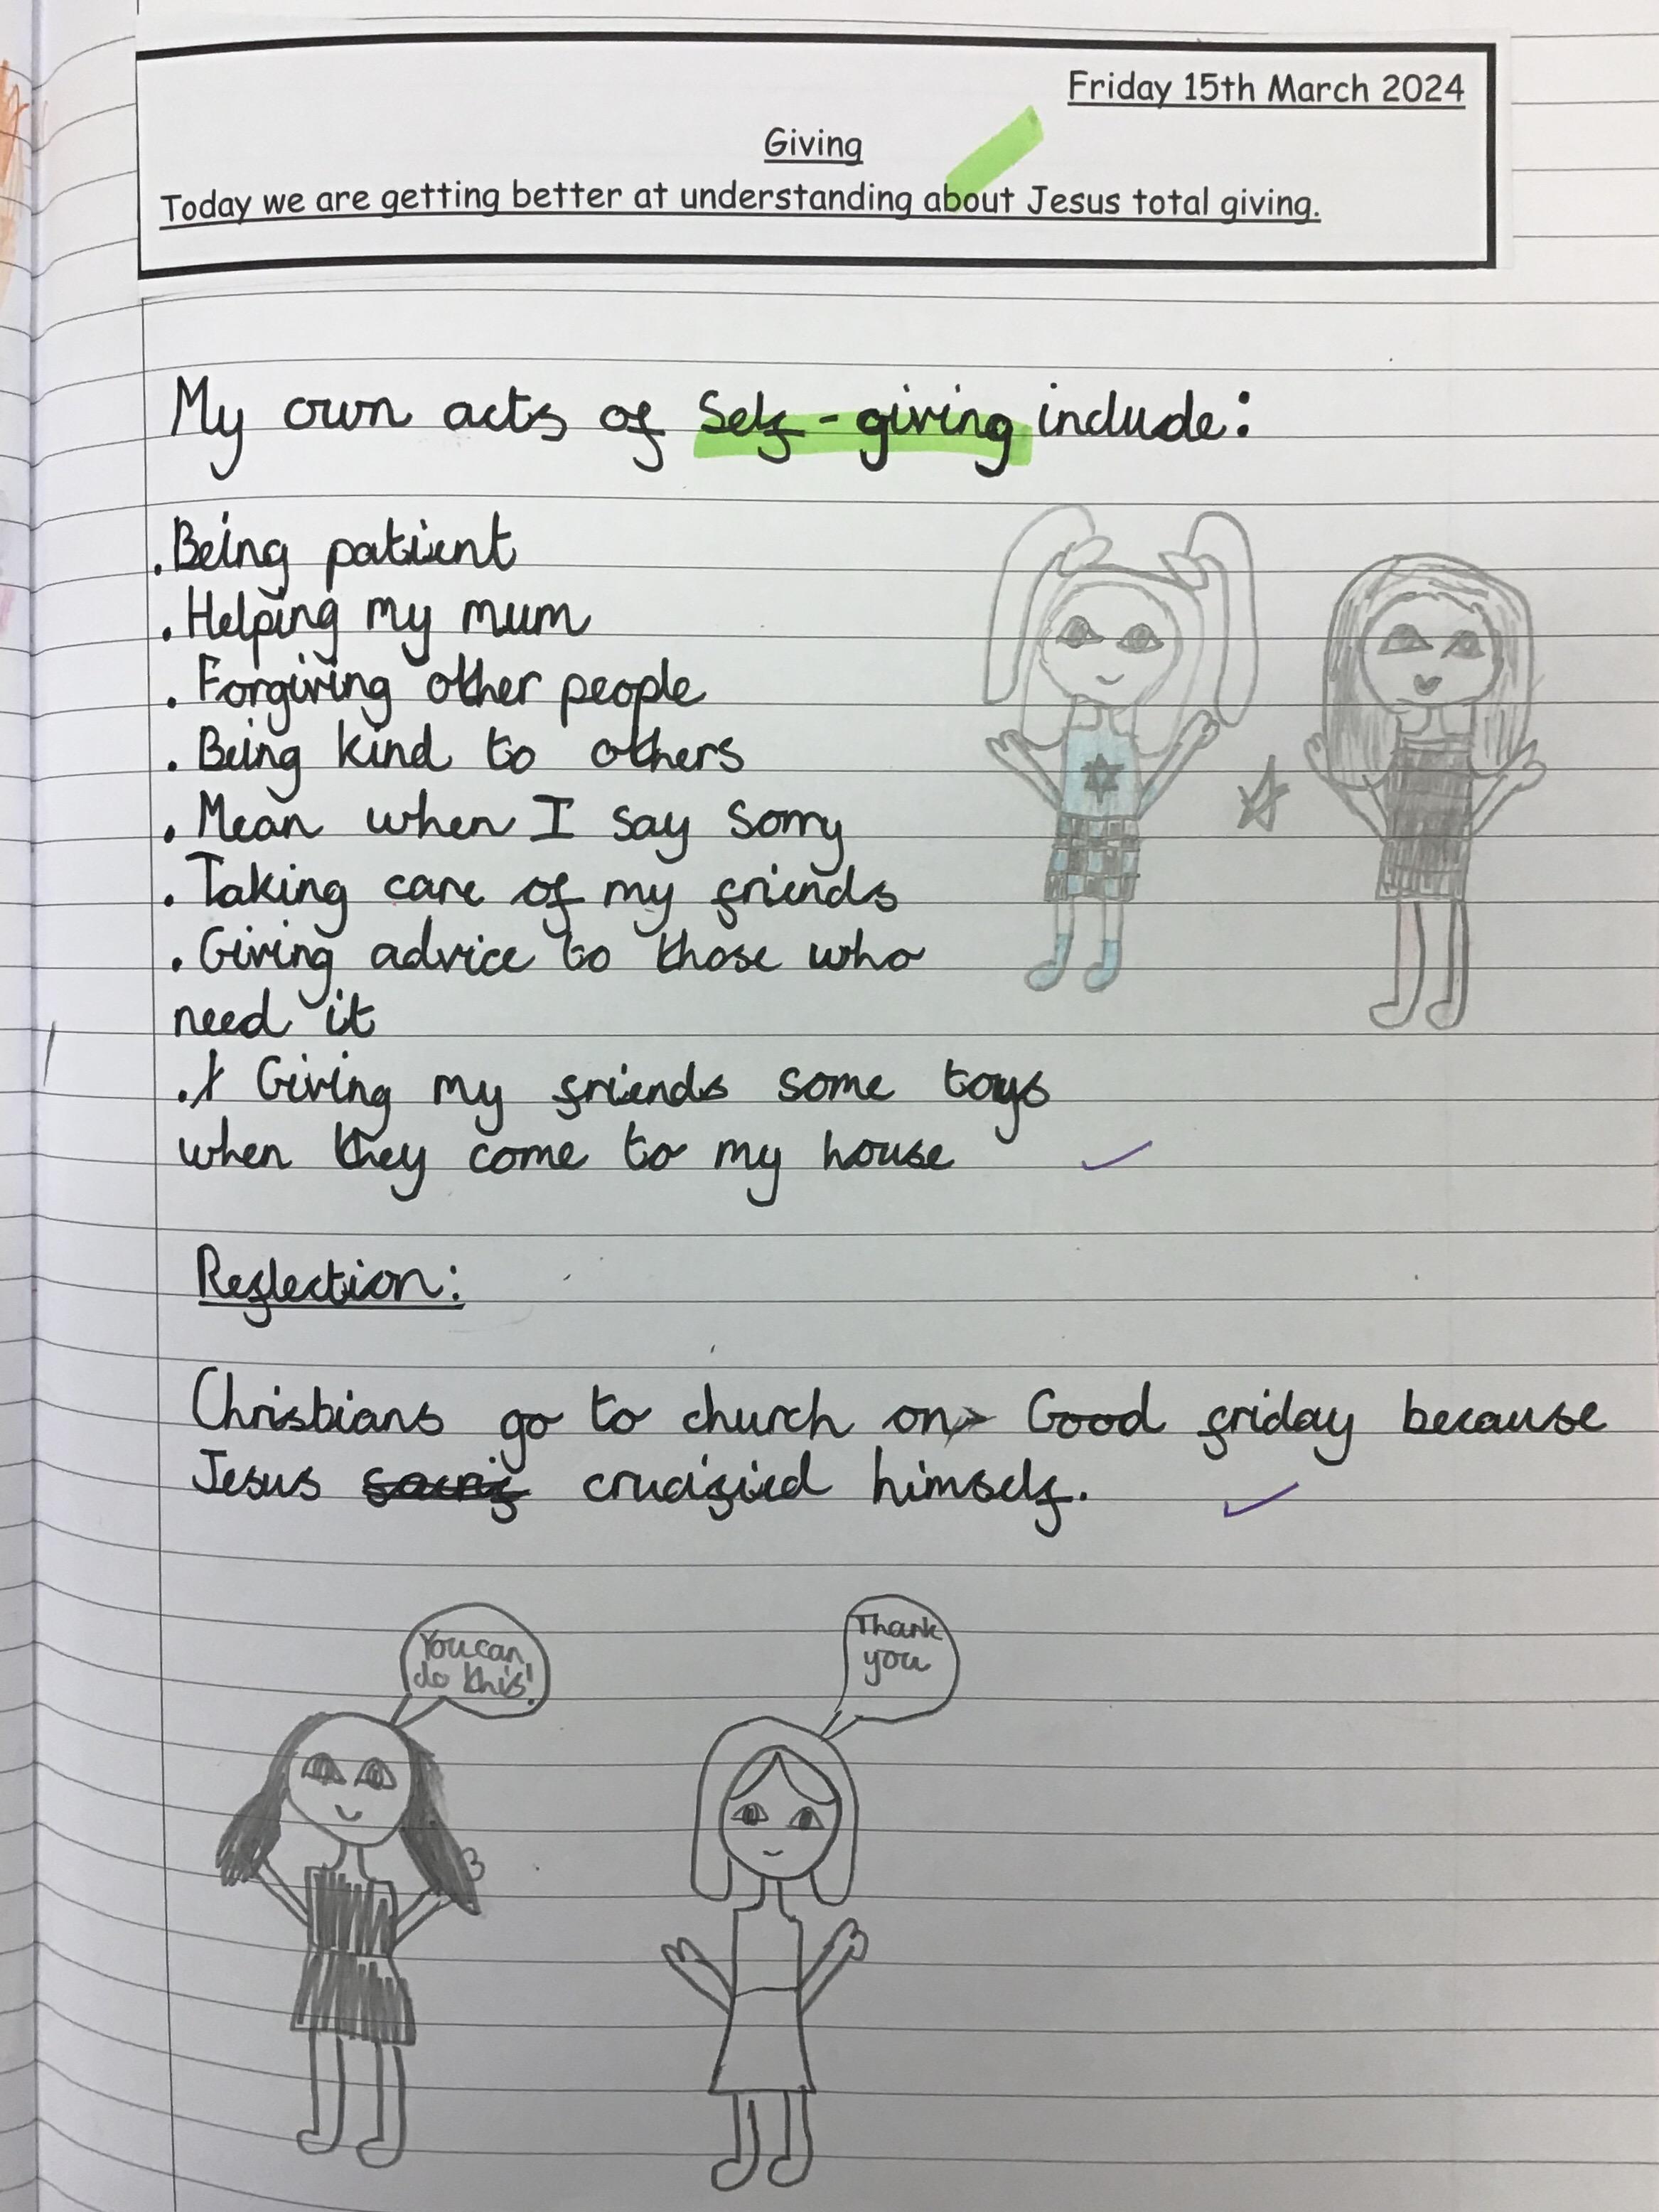 Friday 15th March 2024
Giving
Today we are getting better at understanding about Jesus total giving.
My own acts of Self-giving include:
. Being patient
. Helping my mum
. Forgiving other people
. Being kind to others
. Mean when I say sorry
. Taking care of my friends
. Giving advice to those who
need it
. Giving my friends some toys
when they come to my house
Reflection:
Christians go to church on Good friday because
Jesus crucified himself.
You can
do this!
Thank
you